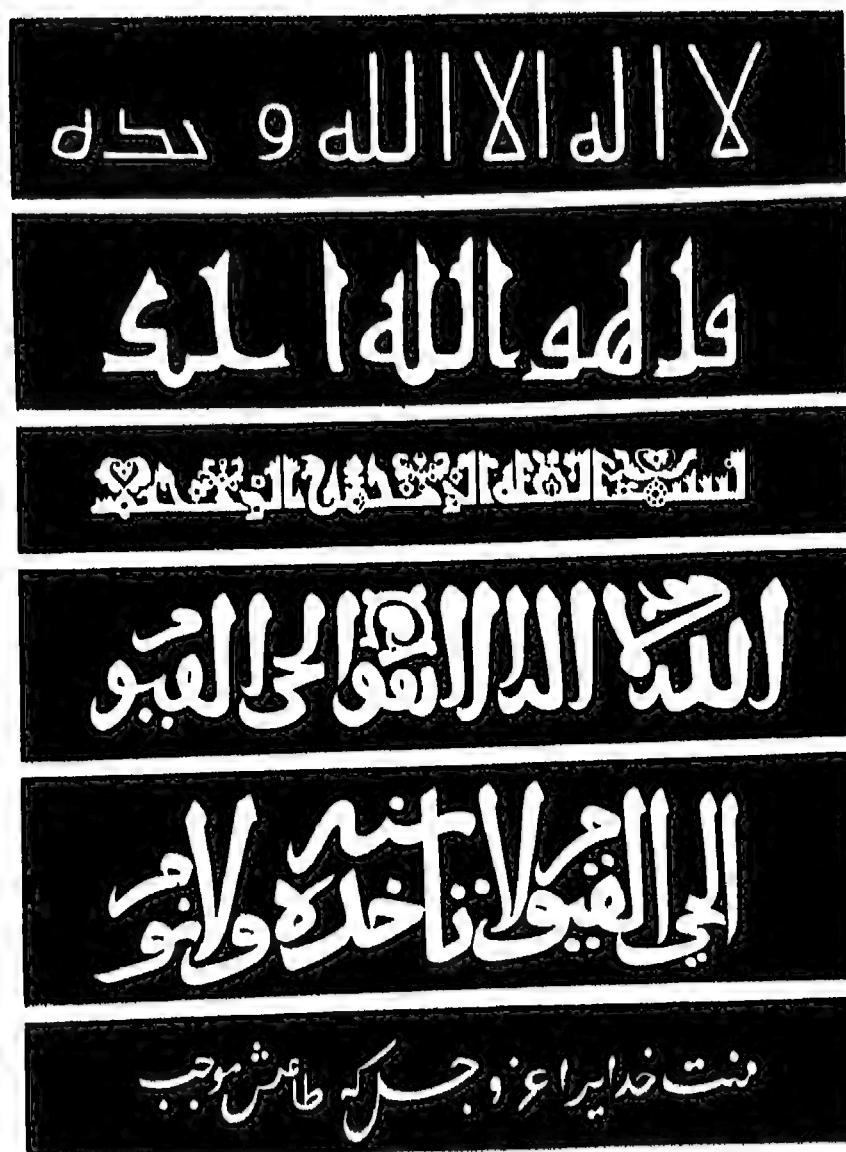 لا اله الا الله وحده
قل هو الله احد
بسم الله الرحمن الرحيم
الله لا اله الا هو الحي القيوم
الحي القيوم لا تأخذه سنه ولا نوم
منت خدايرا عز و جل كه طاعتش موجب